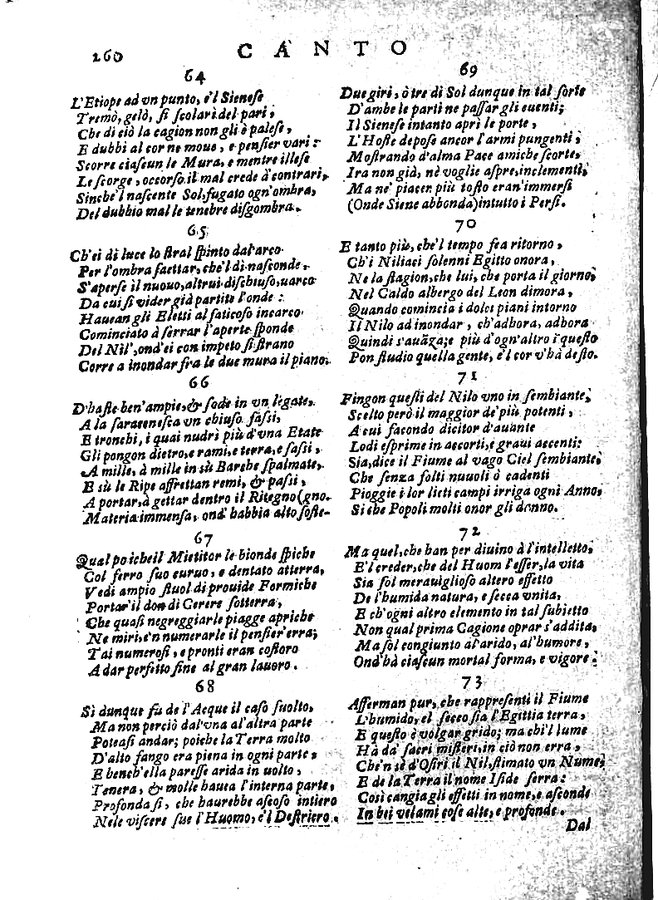 260 CANTO
64
L'Etiope ad vn punto, e'l Sienese
Tremò, gelò, si scolari del pari,
Che di ciò la cagion non gli è palese,
E dubbi al cor ne moue, e pensier vari:
Scorre ciascun le Mura, e mentre illese
Le scorge, occorso il mal crede à contrari,
Sinche'l nascente Sol, fugato ogn'ombra,
Del dubbio mal le tenebre disgombra.
65
Ch'ei di luce lo stral spinto dal'arco
Per l'ombra saettar, che'l dì nasconde,
S'aperse il nuouo, altrui dischiuso, varco
Da cui si vider già partite l'onde:
Hauean gli Eletti al faticoso incarco
Cominciato à serrar l'aperte sponde
Del Nil', ond'ei con impeto si strano
Corre a inondar fra le due mura il piano.
66
D'haste ben'ampie, & sode in vn legate,
A la saracenesca vn chiuso fassi,
E tronchi, i quai nudrì più d'vna Etate
Gli pongon dietro, e rami, e terra, e sassi,
A mille, à mille in sù Barche spalmate,
E sù le Ripe affrettan remi, & passi,
A portar, à gettar dentro il Ritegno (gno.
Materia immensa, ond' habbia alto soste-
67
Qual poiche il Mietitor le bionde spiche
Col ferro suo curuo, e dentato atterra,
Vedi ampio stuol di prouide Formiche
Portar'il don di Cerere sotterra,
Che quasi negreggiar le piagge apriche
Ne miri, e'n numerarle il pensier'erra;
Tai numerosi, e pronti eran costoro
A dar perfetto fine al gran lauoro.
68
Sì dunque fù de l'Acque il caso suolto,
Ma non perciò dal'vna al'altra parte
Poteasi andar; poiche la Terra molto
D'alto fango era piena in ogni parte,
E bench'ella paresse arida in uolto,
Tenera, & molle hauea l'interna parte,
Profonda sì, che haurebbe ascoso intiero
Nele viscere sue l'Huomo, e'l Destriero.
69
Due giri, ò tre di Sol dunque in tal sorte
D'ambe le parti ne passar gli euenti;
Il Sienese intanto aprì le porte,
L'Hoste depose ancor l'armi pungenti,
Mostrando d'alma Pace amiche scorte,
Ira non già, nè voglie aspre, inclementi,
Ma ne' piacer più tosto eran'immersi
(Onde Siene abbonda) intutto i Persi.
70
E tanto più, che'l tempo fea ritorno,
Ch'i Niliaci solenni Egitto onora,
Ne la stagion, che lui, che porta il giorno,
Nel Caldo albergo del Leon dimora,
Quando comincia i dolci piani intorno
Il Nilo ad inondar, ch'adhora, adhora
Quindi s'auãza; e più d'ogn'altro i questo
Pon studio quella gente, e'l cor v'hà desto.
71
Fingon questi del Nilo vno in sembiante,
Scelto però il maggior de' più potenti,
A cui facondo dicitor d'auante
Lodi esprime in accorti, e graui accenti:
Sia, dice il Fiume al vago Ciel sembiante,
Che senza folti nuuoli ò cadenti
Pioggie i lor lieti campi irriga ogni Anno,
Si che Popoli molti onor gli danno.
72
Ma quel, che han per diuino à l'intelletto,
E'l creder, che del Huom l'esser, la vita
Sia sol merauiglioso altero effetto
De l'humida natura, e secca vnita,
E ch'ogni altro elemento in tal subietto
Non qual prima Cagione oprar s'addita,
Ma sol congiunto al'arido, al'humore,
Ond'hà ciascun mortal forma, e vigore.
73
Afferman pur, che rappresenti il Fiume
L'humido, el secco sia l'Egittia terra,
E questo è volgar grido; ma chi'l lume
Hà da' sacri misteri, in ciò non erra,
Che'n sè d'Osiri il Nil, stimato vn Nume,
E de la Terra il nome Iside serra:
Così cangia gli effetti in nome, e asconde
In bei velami cose alte, e profonde.
Dal